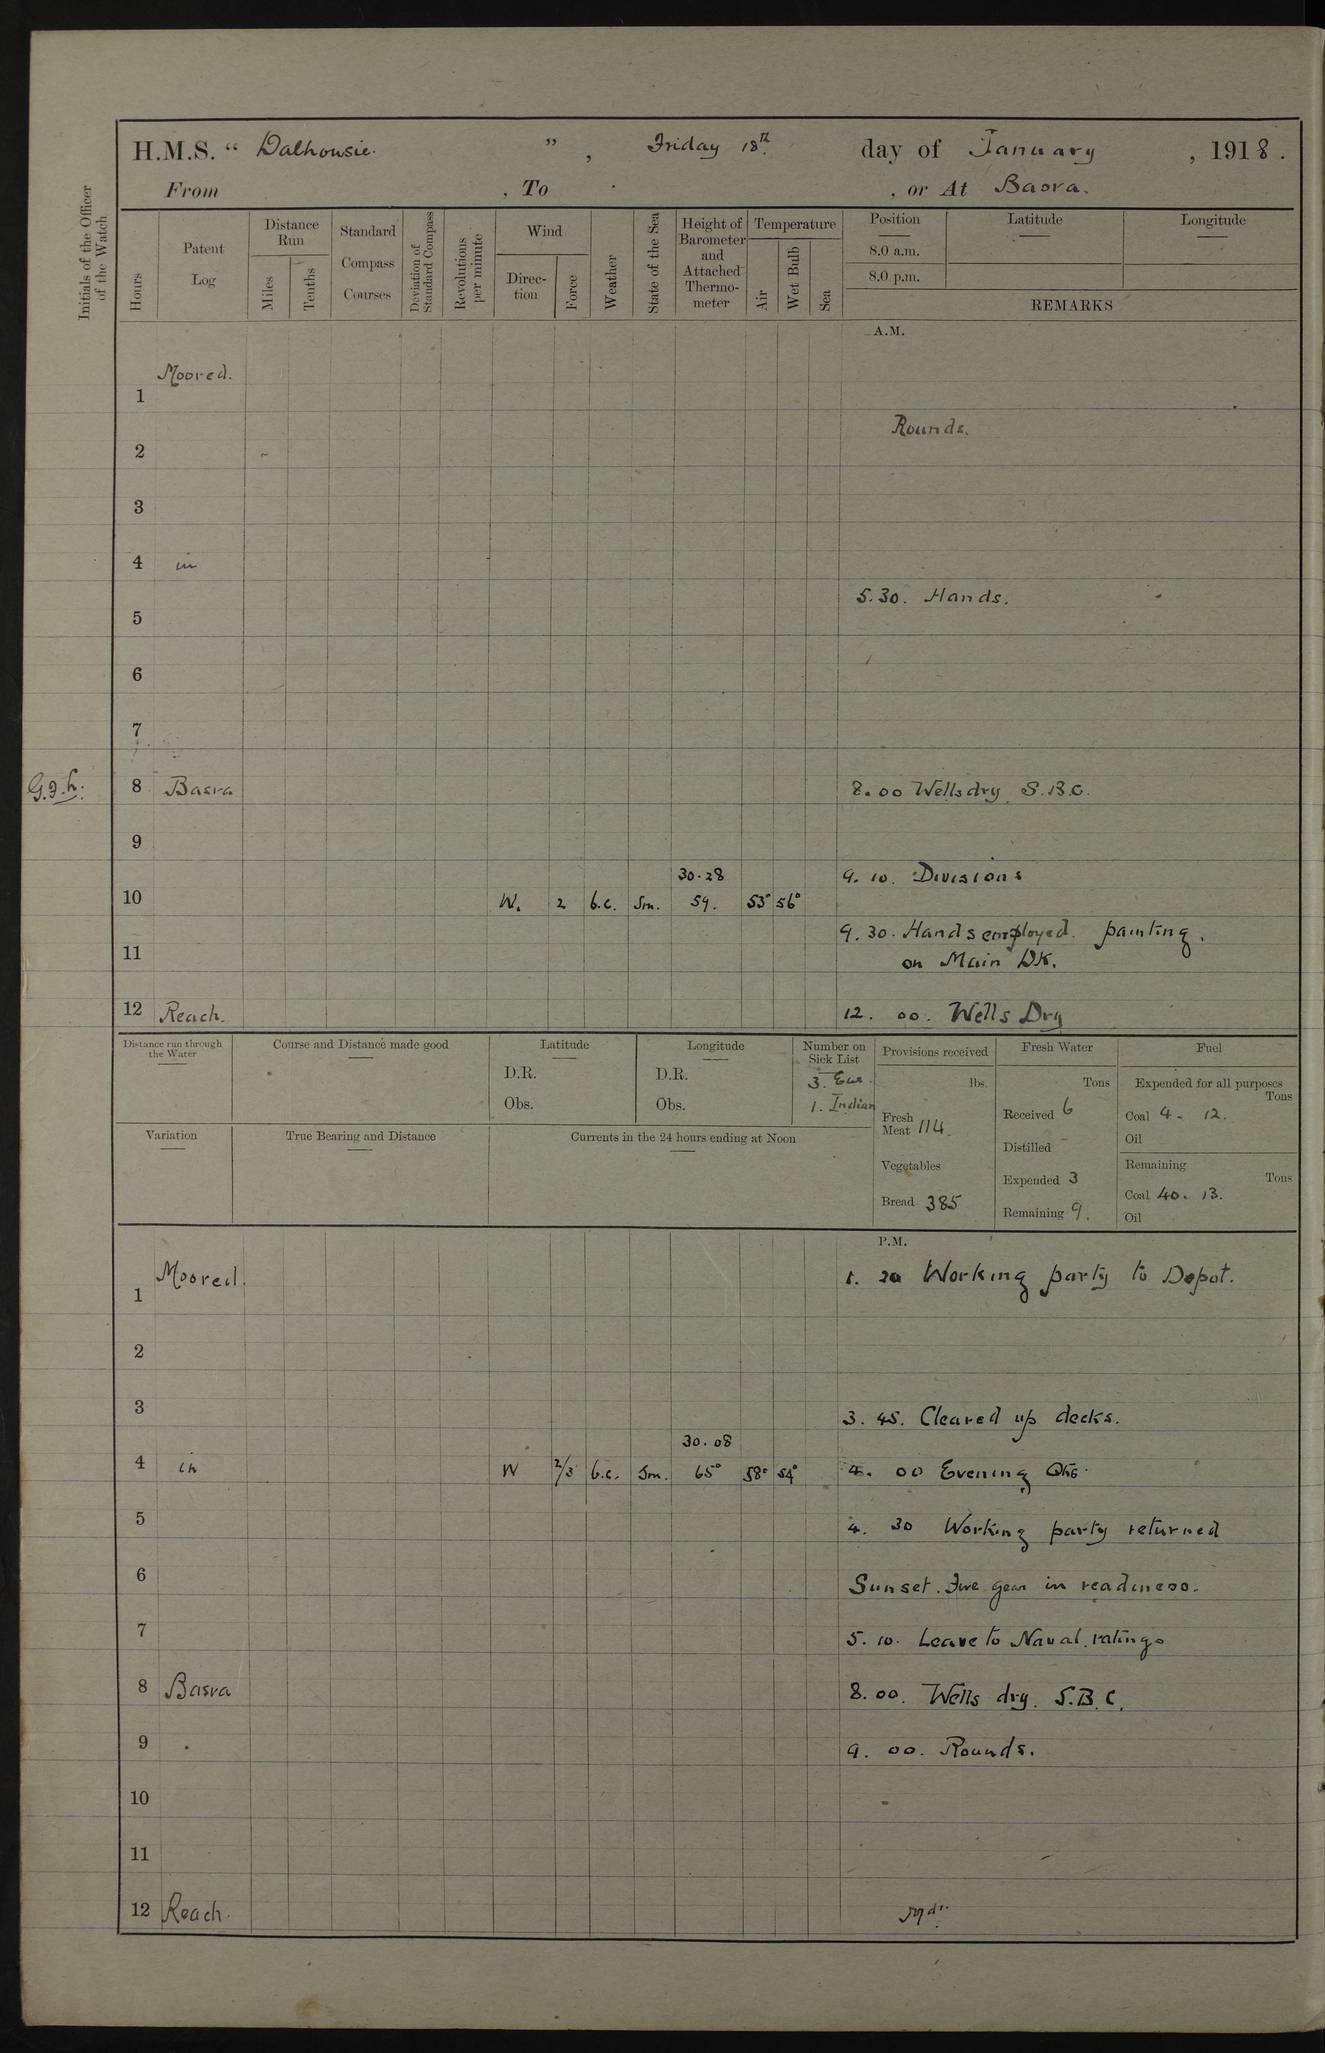 H.M.S. “ Dalhousie. ” , Friday 18th day of January , 1918.
From , To , or At Basra.
Initials of the Officer of the Watch
Hours
Patent Log
Distance Run
Miles
Tenths
Standard Compass Courses
Deviation of Standard Compass
Revolutions per minute
Wind
Direc-tion
Force
Weather
State of the Sea
Height of Barometer and Attached Thermo-meter
Temperature
Air
Wet Bulb
Sea
Position Latitude Longitude
8.0 a.m.
8.0 p.m.
REMARKS
A.M.
Moored.
1
Rounds.
2
3
4 in
5.30. Hands.
5
6
7
8 Basra 8.00 Wells dry S.B.C.
9
30.28 9.10. Divisions
10 W. 2 b.c. Sm. 59. 53° 56°
9.30. Hands employed painting.
11 on Main Dk.
12 Reach. 12.00. Wells Dry
Distance run through the Water
Course and Distance made good
Latitude
D.R.
Obs.
Longitude
D.R.
Obs.
Number on Sick List
3. Eur.
1. Indian
Provisions received
lbs.
Fresh Meat 114.
Vegetables
Bread 385
Fresh Water
Tons
Received 6
Distilled -
Expended 3
Remaining 9.
Fuel
Expended for all purposes
Tons
Coal 4. 12.
Oil
Remaining
Tons
Coal 40. 13.
Oil
Variation
True Bearing and Distance
Currents in the 24 hours ending at Noon
P.M.
Moored. 1. 20 Working party to Depot.
1
2
3 3.45. Cleared up decks.
30.08
4 in W 2/3 b.c. Sm. 65° 58° 54° 4.00 Evening Qtrs.
5 4.30 Working party returned
6 Sunset. Fire gear in readiness.
7 5.10. Leave to Naval ratings
8 Basra 8.00. Wells dry. S.B.C.
9 9.00. Rounds.
10
11
12 Reach.